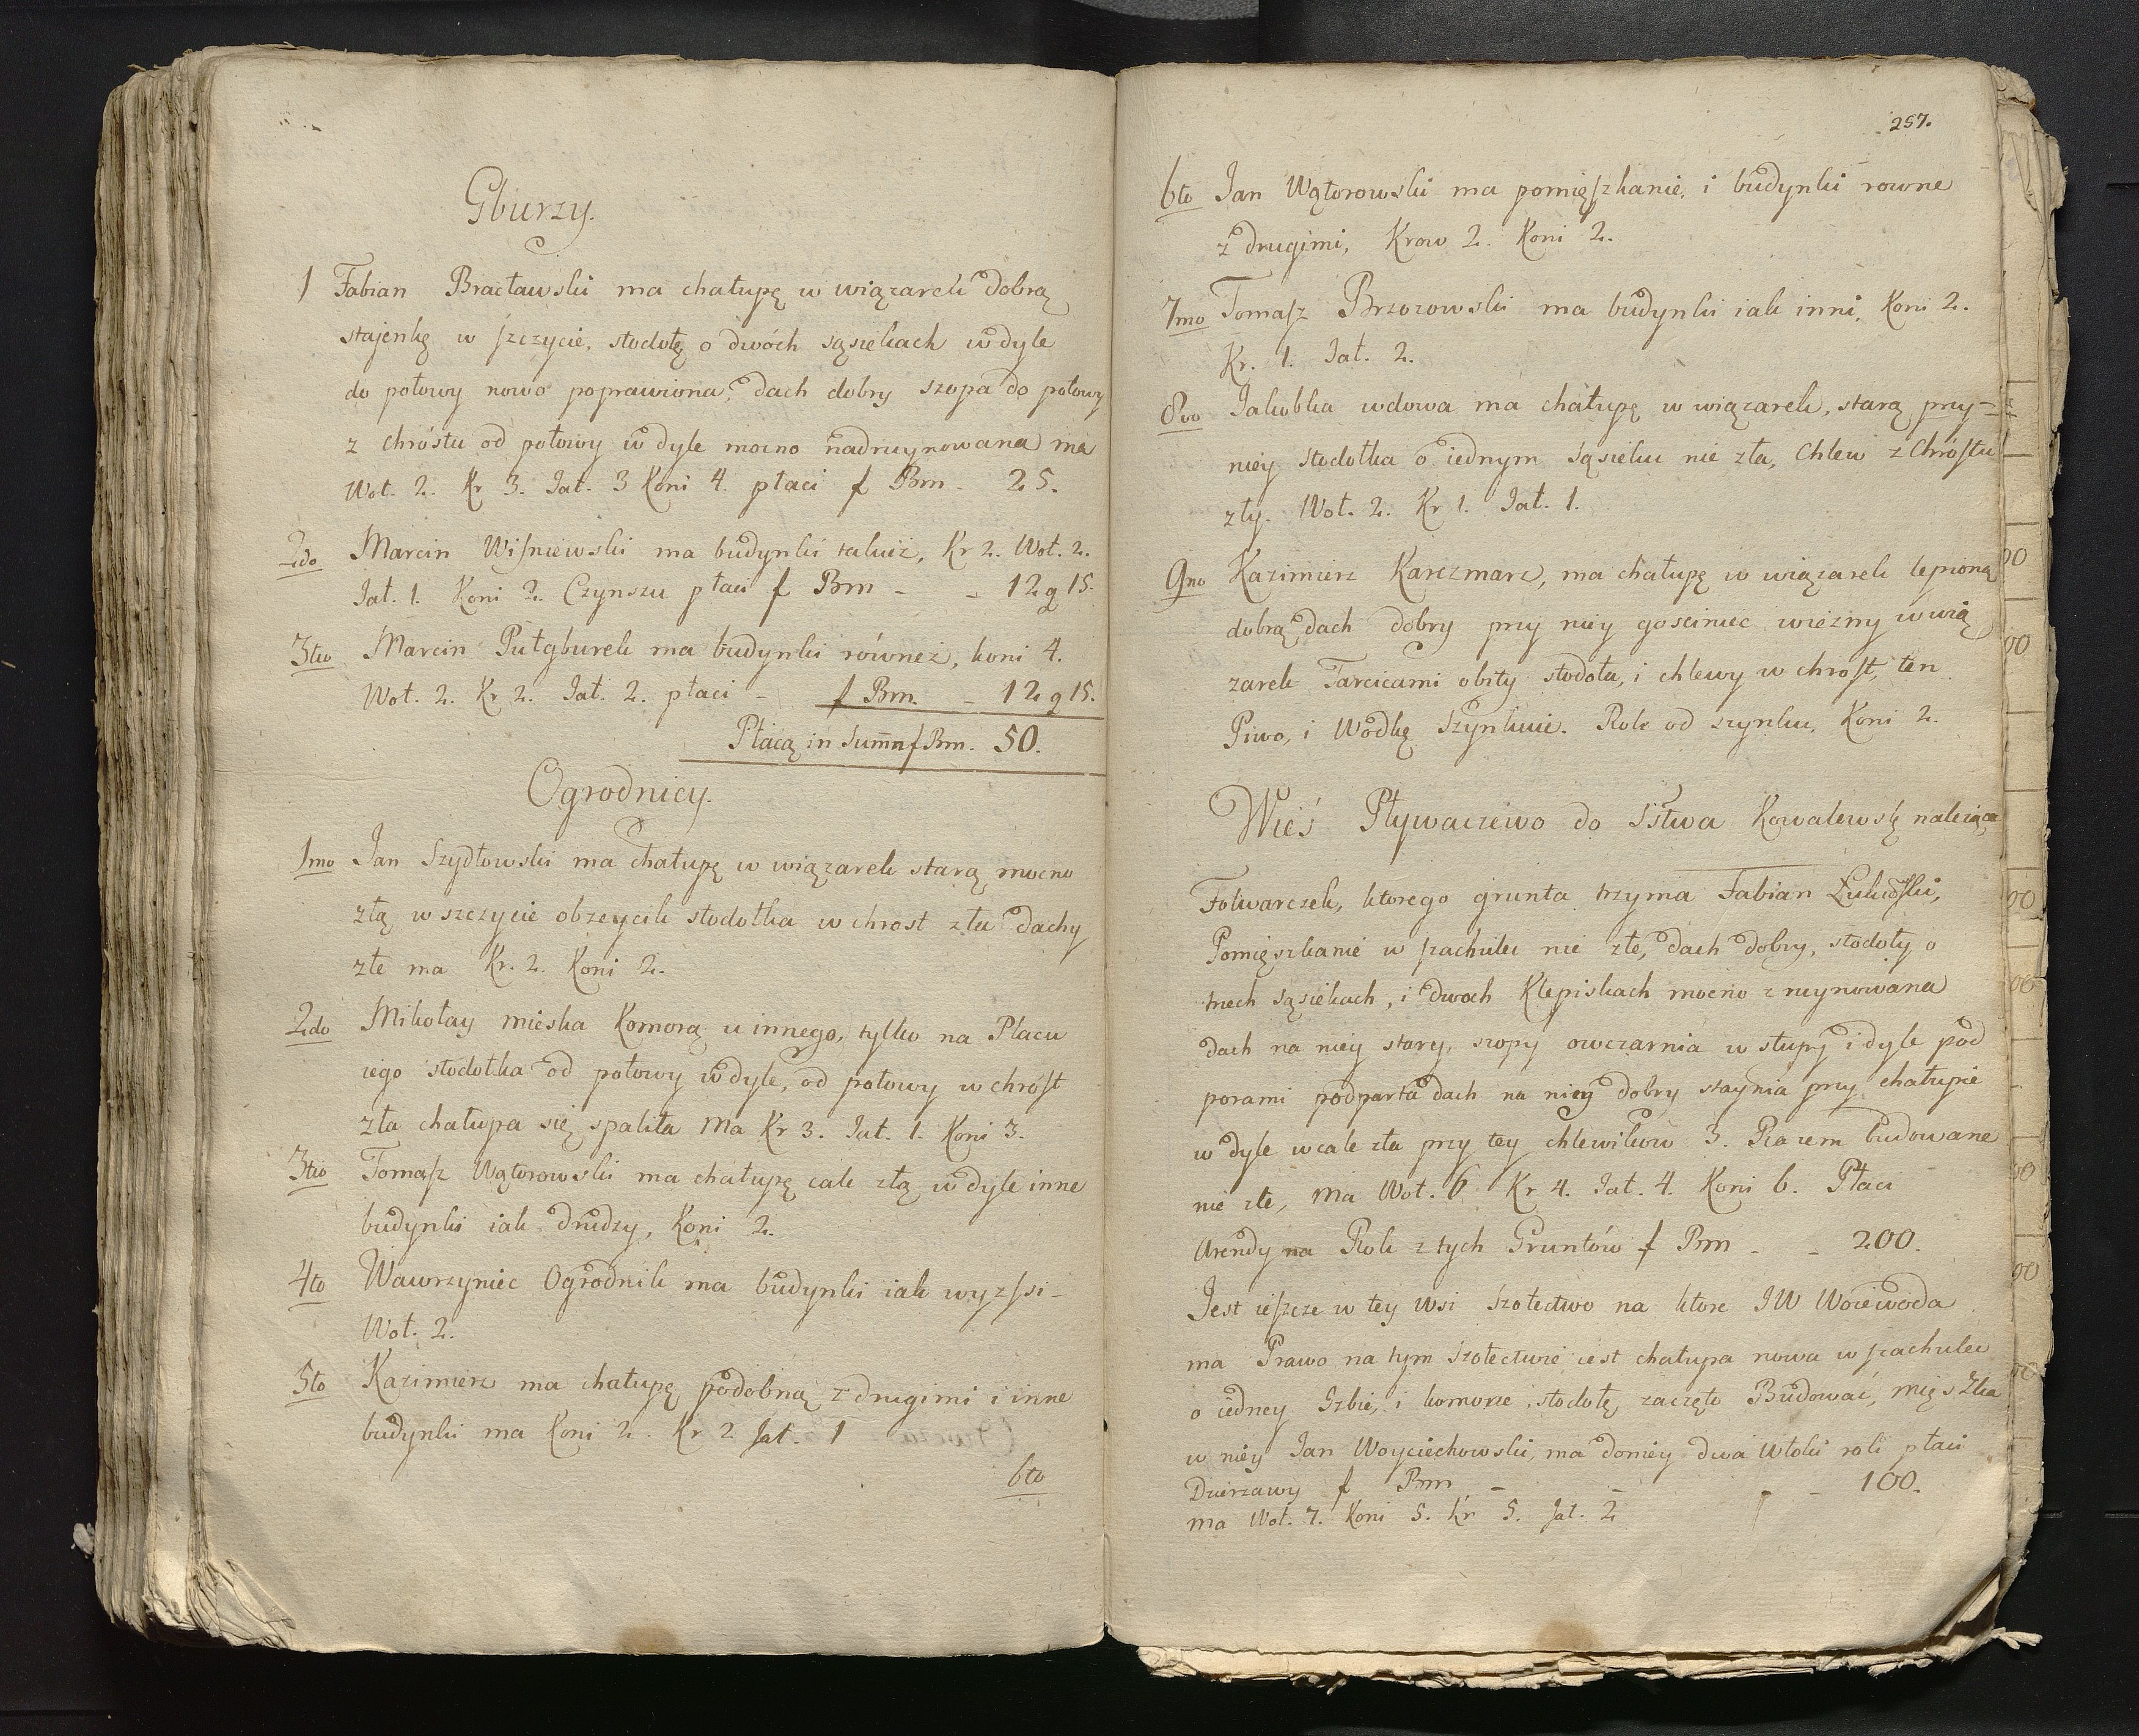 Gburzy.
1 Fabian Bracławski ma chałupę w wiązarek dobrą
stajenkę w szczycie, stodołę o dwóch sąsiekach w dyle
do połowy nowo poprawiona, dach dobry szopa do połowy
z chróstu od połowy w dyle mocno nadruynowana ma
Woł. 2. Kr 3. Jał. 3 Koni 4. płaci f Bm - 25.
2do Marcin Wiśniewski ma budynki takież, Kr 2. Woł. 2.
Jał. 1. Koni 2. Czynszu płaci f Bm - - 12 g 15.
3tio Marcin Pułgburek ma budynki równeż, koni 4.
Woł. 2. Kr 2. Jał. 2. płaci - f Bm. - 12 g 15.
Płacą in Summa f Bm. 50.
Ogrodnicy.
1mo Jan Szydłowski ma chałupę w wiązarek starą mocno
złą w szczycie obzeycik stodołka w chrost zła dachy
złe ma Kr. 2. Koni 2.
2do Mikołay mieska Komorą u innego, tylko na Placu
iego stodołka od połowy w dyle, od połowy w chróst
zła chałupa się spaliła Ma Kr 3. Jał. 1. Koni 3.
3tio Tomasz Wątorowski ma chałupę cale złą w dyle inne
budynki iak drudzy, Koni 2.
4to Wawrzyniec Ogrodnik ma budynki iak wyzssi -
Woł. 2.
5to Kazimierz ma chałupę podobną z drugimi i inne
budynki ma Koni 2. Kr 2 Jał. 1
6to
257.
6to Jan Wątorowski ma pomięszkanie, i budynki rowne
z drugimi, Krow 2. Koni 2.
7mo Tomasz Brzozowski ma budynki iak inni, Koni 2.
Kr. 1. Jał. 2.
8vo Jakubka wdowa ma chałupę w wiązarek, starą przy-
niey stodołka o iednym sąsieku nie zła, Chlew z Chróstu
zły. Woł. 2. Kr 1. Jał. 1.
9no Kazimierz Karczmarz, ma chałupę w wiązarek lepioną
dobrą dach dobry przy niey gosciniec wiezny w wią
zarek Tarcicami obity stodoła, i chlewy w chrost, ten
Piwo, i Wodkę Szynkuie. Role od szynku, Koni 2.
Wieś Pływaczewo do Sstwa Kowalewsk należąca
Folwarczek, ktorego grunta trzyma Fabian Łukowski,
Pomięszkanie w szachulec nie złe, dach dobry, stodoły o
trzech sąsiekach, i dwoch Klepiskach mocno zruynowana
dach na niey stary, szopy owczarnia w słupy i dyle pod
porami podparta dach na niey dobry staynia przy chałupie
w dyle wcale zła przy tey chlewikow 3. Razem budowane
nie złe, ma Woł. 6 Kr 4. Jał. 4. Koni 6. Płaci
Arendy na Rok z tych Gruntów f Bm - - 200.
Jest ieszcze w tey wsi szołectwo na ktore JW Woiewoda
ma Prawo na tym szołectwie iest chałupa nowa w szachulec
o iedney Izbie, i komorze, stodołę zaczęto Budować, mięszka
w niey Jan Woyciechowski, ma doniey dwa Włoki roli, płaci
Dzierzawy f Bm - - - 100.
ma Woł. 7. Koni 5. Kr 5. Jał. 2